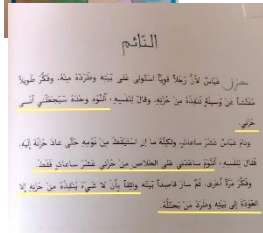 النائم
حزن عباس لأن رجلا قويا استولى على بيته وطرده منه، وفكر طويلا
عن وسيلة تنقذه من حزنه، وقال لنفسه: النوم وحده سيجعلني أنسى
حزني.
ونام عباس عشر ساعات، ولكنه ما إن استيقظ من نومه حتى عاد حزنه إليه،
فقال لنفسه: النوم ساعدني على الخلاص من حزني عشر ساعات فقط.
وفكر مرة أخرى، ثم سار قاصدا بيته واثقا بأن لا شيء ينقذه من حزنه إلا
العودة إلى بيته وطرد من يحتله.